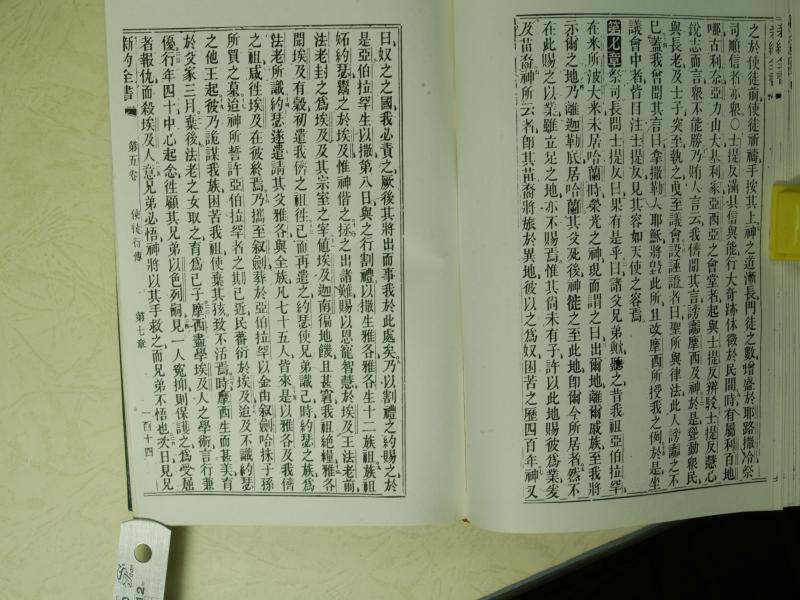 之於使徒前使徒祈禱手按其上神之道漸長門徒之數增盛於耶路撒冷祭
司順信者亦眾○士提反滿具信與能行大奇跡休徵於民間時有屬利百地
哪古利奈亞力山大基利家亞西亞之會堂者起與士提反辨駁士提反慧心
銳志而言眾不能勝乃賄人言云我儕聞其言謗讟摩西及神於是聳動眾民
與長老及士子突至執之曳至議會設誣證者曰聖所與律法此人謗讟之不
已蓋我會聞其言曰拿撒勒人耶穌將毀此所且改摩西所授我之例於是坐
議會中者皆目注士提反見其容如天使之容焉
第七章祭司長問士提反曰果有是乎曰諸父兄弟歟聽之昔我祖亞伯拉罕
在米所波大米未居哈蘭時榮光之神現而謂之曰出爾地離爾戚族至我將
示爾之地乃離迦勒底居哈蘭其父死後神徙之至此地卽爾今所居者然不
在此賜之以業雖立足之地亦不賜焉惟其尙未有子許以此地賜彼爲業爰
及苗裔神所云者卽其苗裔將旅於異地彼以之爲奴困苦之歷四百年神又
曰奴之之國我必責之厥後其將出而事我於此處矣乃以割禮之約賜之於
是亞伯拉罕生以撒第八日與之行割禮以撒生雅各雅各生十二族祖族祖
妬約瑟鬻之於埃及惟神偕之拯之出諸難賜以恩寵智慧於埃及王法老前
法老封之爲埃及及其宗室之宰値埃及迦南徧地饑且甚窘我祖絕糧雅各
聞埃及有穀初遣我儕之祖往已而再遣之約瑟使兄弟識己時約瑟之族爲
法老所識約瑟遂遣請其父雅各與全族凡七十五人皆來是以雅各及我儕
之祖咸往埃及在彼終焉乃攜至叙劍葬於亞伯拉罕以金由叙劍哈抹子孫
所買之墓迨神所誓許亞伯拉罕者之其已近民蕃衍於埃及迨及不識約瑟
之他王起彼乃詭謀我族困苦我祖使棄其孩致不活焉時摩西生而甚美育
於父家三月棄後法老之女取之育爲己子摩西盡學埃及人之學術言行兼
優行年四十中心起念往顧其兄弟以色列嗣見一人冤抑則保護之爲受屈
者報仇而殺埃及人意兄弟必悟神將以其手救之而兄弟不悟也次日見兄
新約全書 第五卷 使徒行傳 第七章 一百十四